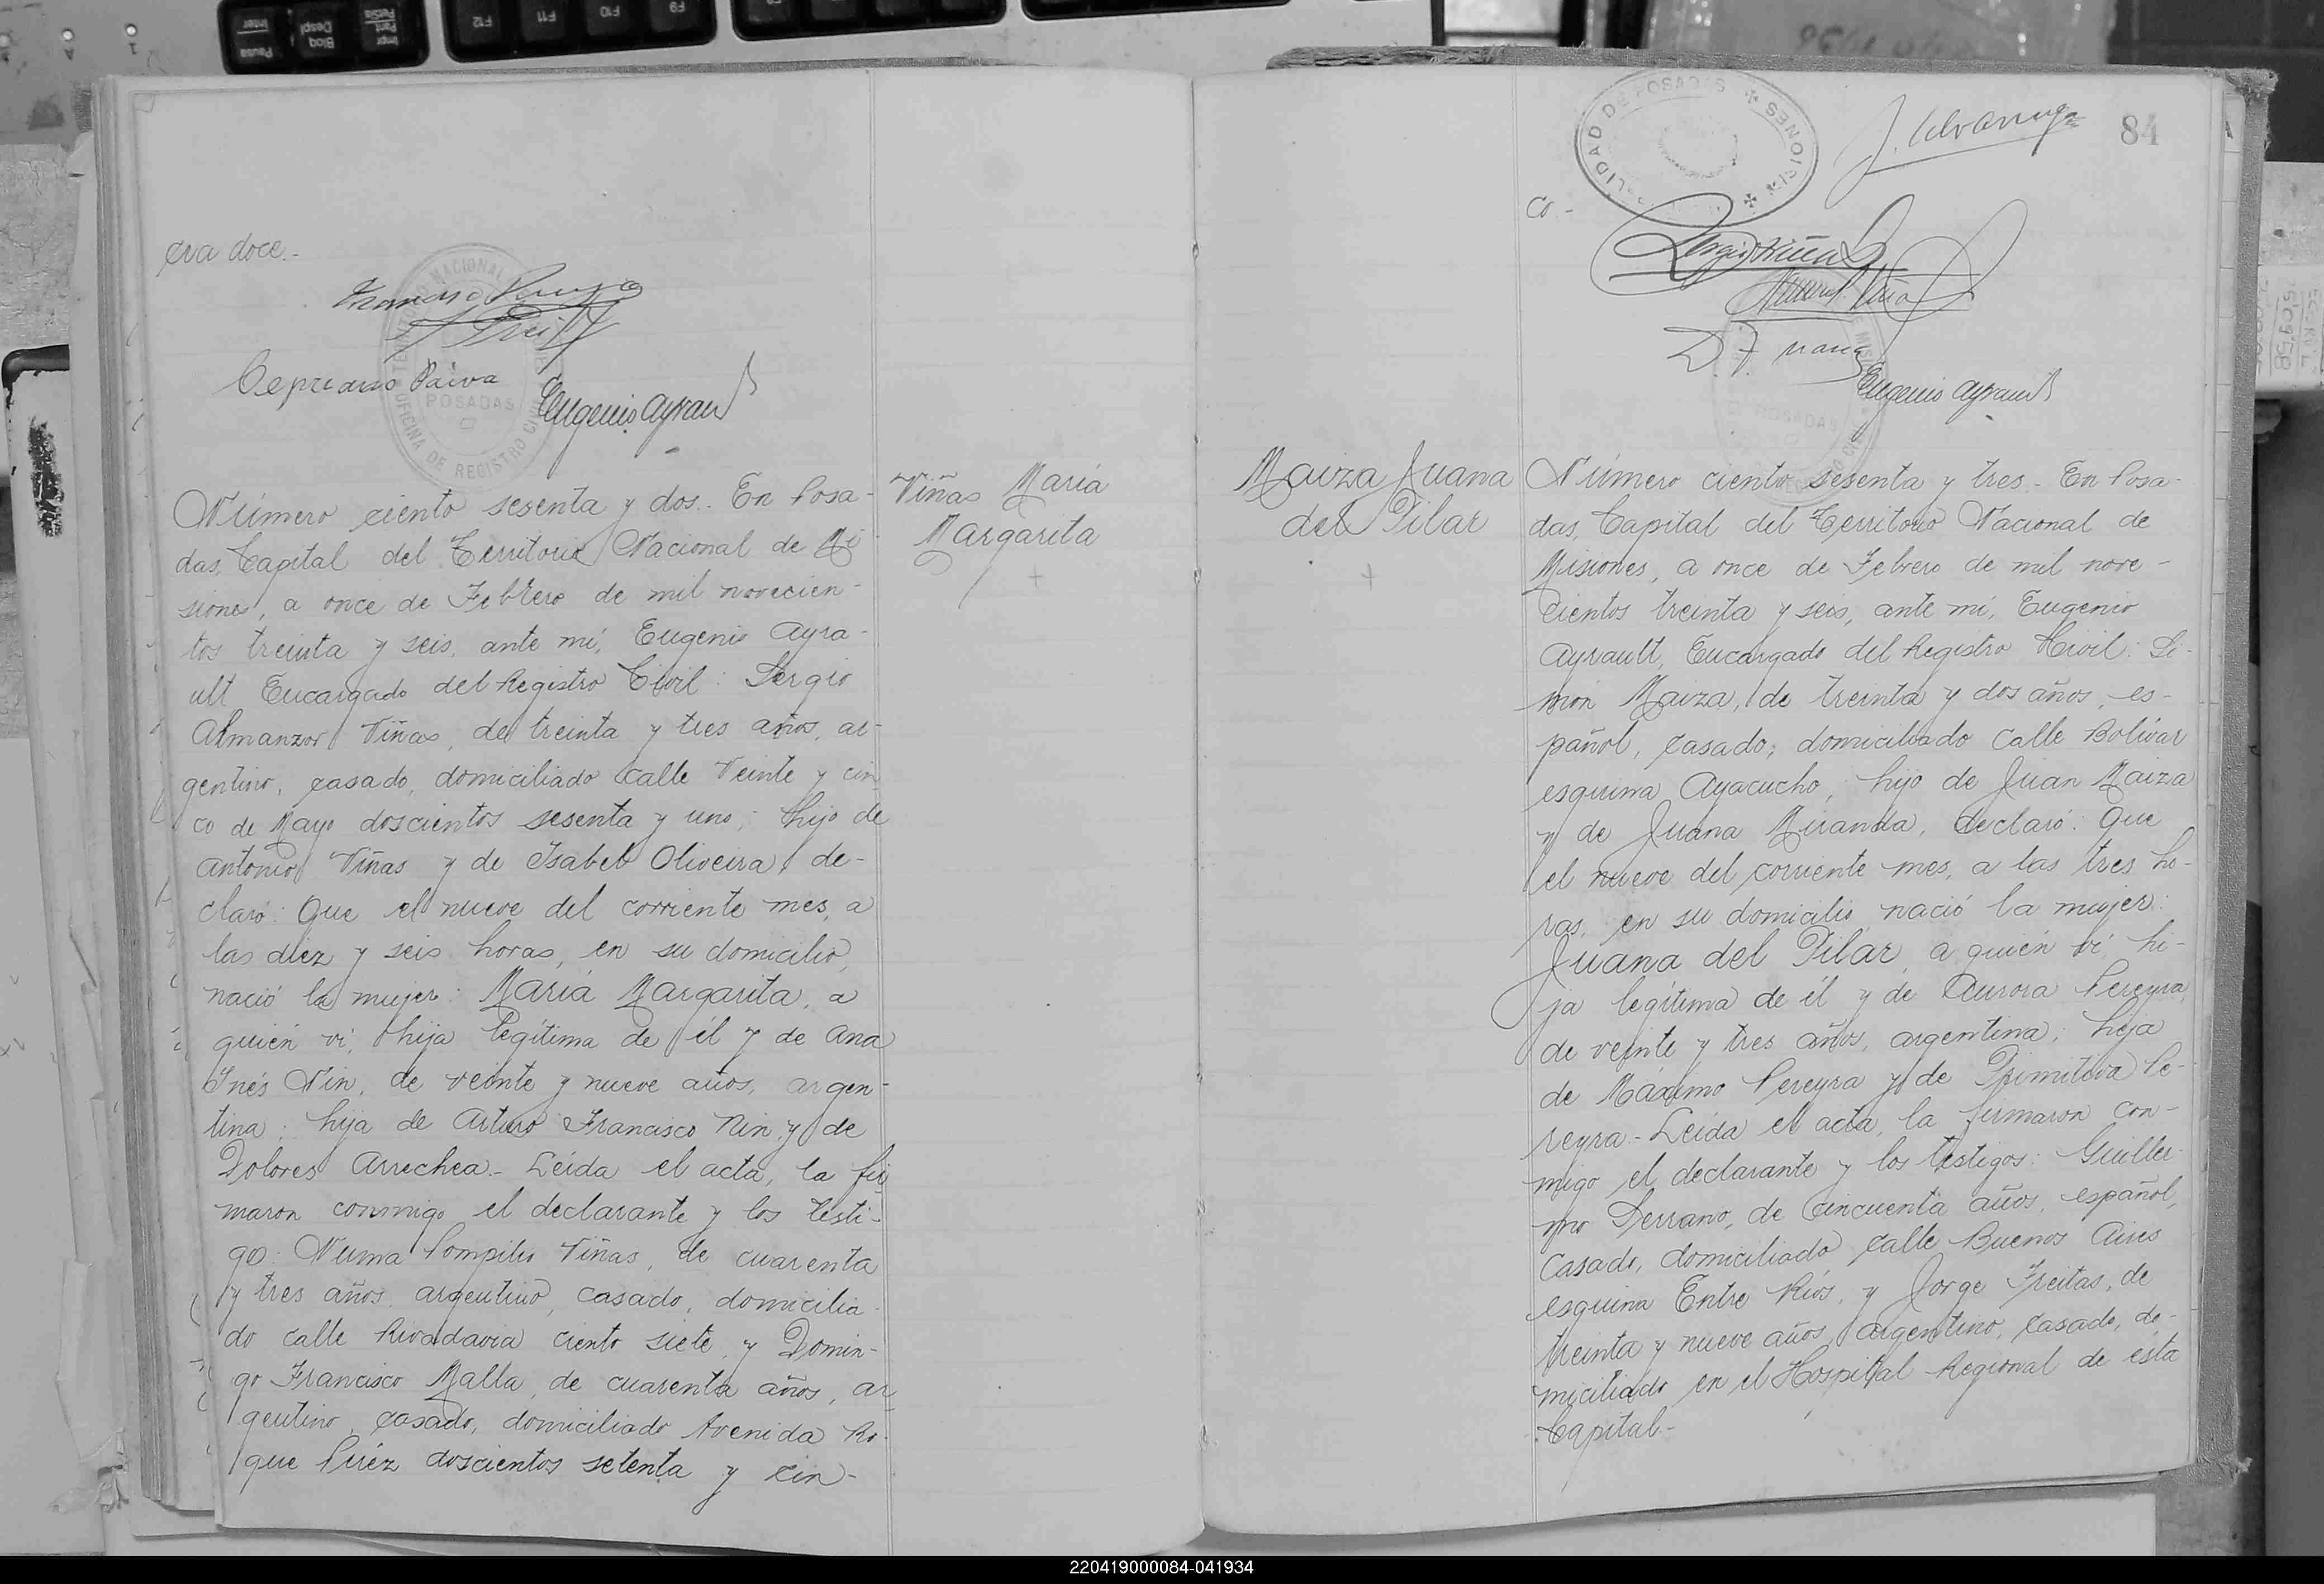 eva doce.-
Cepriano Paiva
Eugenio Ayrault
TERRITORIO NACIONAL
OFICINA DE REGISTRO CIVIL
POSADAS
Viñas María
Margarita
Número ciento sesenta y dos.. En Posa-
das, Capital del Territorio Nacional de Mi
siones, a once de Febrero de mil novecien-
tos treinta y seis, ante mí, Eugenio Ayra-
ult Encargado del Registro Civil: Sergio
Almanzor Viñas, de treinta y tres años, ar-
gentino, casado, domiciliado calle Veinte y cin
co de Mayo doscientos sesenta y uno; hijo de
Antonio Viñas y de Isabel Oliveira, de-
claró: Que el nueve del corriente mes, a
las diez y seis horas, en su domicilio,
nació la mujer: María Margarita, a
quién vi, hija legítima de él y de Ana
Inés Nin, de veinte y nueve años, argen-
tina; hija de Arturo Francisco Nin y de
Dolores Arrechea.- Leída el acta, la fir
maron conmigo el declarante y los testi-
go: Numa Pompilio Viñas, de cuarenta
y tres años, argentino, casado, domicilia
do calle Rivadavia ciento siete, y Domin-
go Francisco Malla, de cuarenta años, ar
gentino, casado, domiciliado Avenida Ro-
que Pérez doscientos setenta y cin-
84
MISIONES
co-
Sergio Viñas
Eugenio Ayrault
POSADAS
Maiza Juana
del Pilar
Número ciento sesenta y tres - En Posa-
das, Capital del Territorio Nacional de
Misiones, a once de Febrero de mil nove-
cientos treinta y seis, ante mí, Eugenio
Ayrault, Encargado del Registro Civil: Si-
món Maiza, de treinta y dos años, es-
pañol, casado, domiciliado calle Bolívar
esquina Ayacucho; hijo de Juan Maiza
y de Juana Miranda, declaró: Que
el nueve del corriente mes, a las tres ho-
ras, en su domicilio, nació la mujer:
Juana del Pilar, a quién vi, hi-
ja legítima de él y de Aurora Pereyra,
de veinte y tres años, argentina; hija
de Máximo Pereyra y de Primitiva Pe-
reyra - Leída el acta, la firmaron con-
migo el declarante y los testigos: Guiller-
mo Serrano, de cincuenta años, español,
casado, domiciliado calle Buenos Aires
esquina Entre Ríos, y Jorge Freitas, de
treinta y nueve años, argentino, casado, do-
miciliado en el Hospital Regional de esta
Capital.-
220419000084-041934